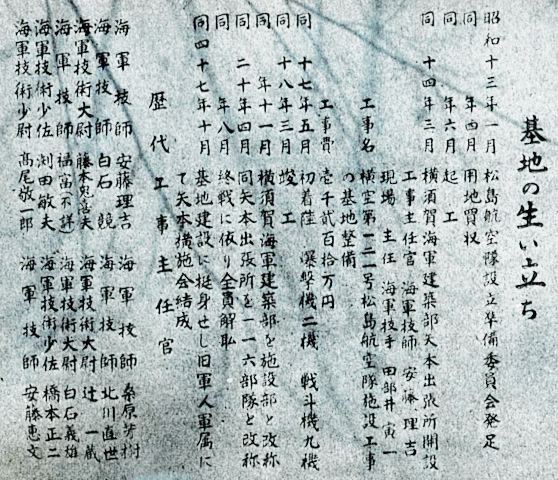 基地の生い立ち
昭和十三年一月 松島航空隊設立準備委員会発足
同 年四月 用地買収
同 年六月 起工
同 十四年三月 横須賀海軍建築部矢本出張所開設
工事主任官 海軍技師 安藤理吉
現場 主任 海軍技手 田部井寅一
工事名 横空第一二一号松島航空隊施設工事
の基地整備
工事費 壱千弐百拾万円
同 十七年五月 初着陸 爆撃機二機 戦斗機九機
同 十八年三月 竣工
同 年十一月 横須賀海軍建築部を施設部と改称
同 二十年四月 同矢本出張所を一一六部隊と改称
同 年八月 終戦に依り全員解散
同四十七年十月 基地建設に挺身せし旧軍人軍属に
て矢本横施会結成
歴代工事主任官
海軍技師 安藤理吉 海軍技師 桑原芳樹
海軍技師 白石競 海軍技師 北川直世
海軍技術大尉 藤本喜夫 海軍技術大尉 辻一蔵
海軍技師 福富不詳 海軍技術大尉 白石義雄
海軍技術少佐 渕田敏夫 海軍技術少佐 橋本正二
海軍技術少佐 高尾敬一郎 海軍技師 安藤恵文